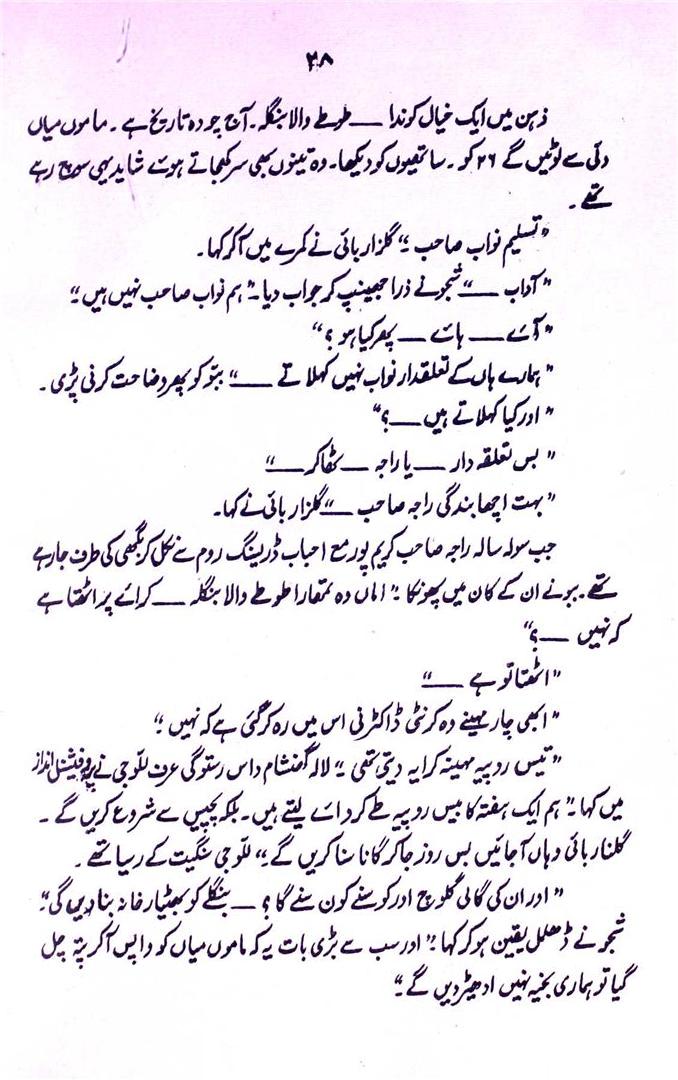 ۳۸
ذہن میں ایک خیال کوندا — طوطے والا بنگلہ۔ آج چودہ تاریخ ہے۔ ماموں میاں
دلّی سے لوٹیں گے ۲۶ کو۔ ساتھیوں کو دیکھا۔ وہ تینوں بھی سر کھجاتے ہوئے شاید یہی سوچ رہے
تھے۔
"تسلیم نواب صاحب۔" گلزار بائی نے کمرے میں آکر کہا۔
"آداب —" شجو نے ذرا جھینپ کر جواب دیا۔ "ہم نواب صاحب نہیں ہیں۔"
"آئے — ہائے — پھر کیا ہو؟"
"ہمارے ہاں کے تعلقدار نواب نہیں کہلاتے —" ببّو کو پھر وضاحت کرنی پڑی۔
"اور کیا کہلاتے ہیں —؟"
"بس تعلقہ دار — یا راجہ — ٹھاکر —"
"بہت اچھا بندگی راجہ صاحب —" گلزار بائی نے کہا۔
جب سولہ سالہ راجہ صاحب کریم پور مع احباب ڈریسنگ روم سے نکل کر بگھی کی طرف جا رہے
تھے۔ ببو نے ان کے کان میں پھونکا۔ "اماں وہ تمھارا طوطے والا بنگلہ — کرائے پر اٹھتا ہے
کہ نہیں —؟"
"اٹھتا تو ہے —"
"ابھی چار مہینے وہ کرنٹی ڈاکٹرنی اس میں رہ کر گئی ہے کہ نہیں۔"
"تیس روپیہ مہینہ کرایہ دیتی تھی۔" لالہ گھنشام داس رستوگی عرف للّو جی نے پروفیشنل انداز
میں کہا۔ "ہم ایک ہفتہ کا بیس روپیہ طے کروائے لیتے ہیں۔ بلکہ پچیس سے شروع کریں گے۔
گلنار بائی وہاں آجائیں بس روز جاکر گانا سنا کریں گے۔" للّو جی سنگیت کے رسیا تھے۔
"اور ان کی گالی گلوچ اور کوسنے کون سنے گا؟ — بنگلے کو بھٹیار خانہ بنا دیں گی۔"
شجو نے ڈھلمل یقین ہوکر کہا۔ "اور سب سے بڑی بات یہ کہ ماموں میاں کو واپس آکر پتہ چل
گیا تو ہماری بخیہ نہیں ادھیڑ دیں گے۔"